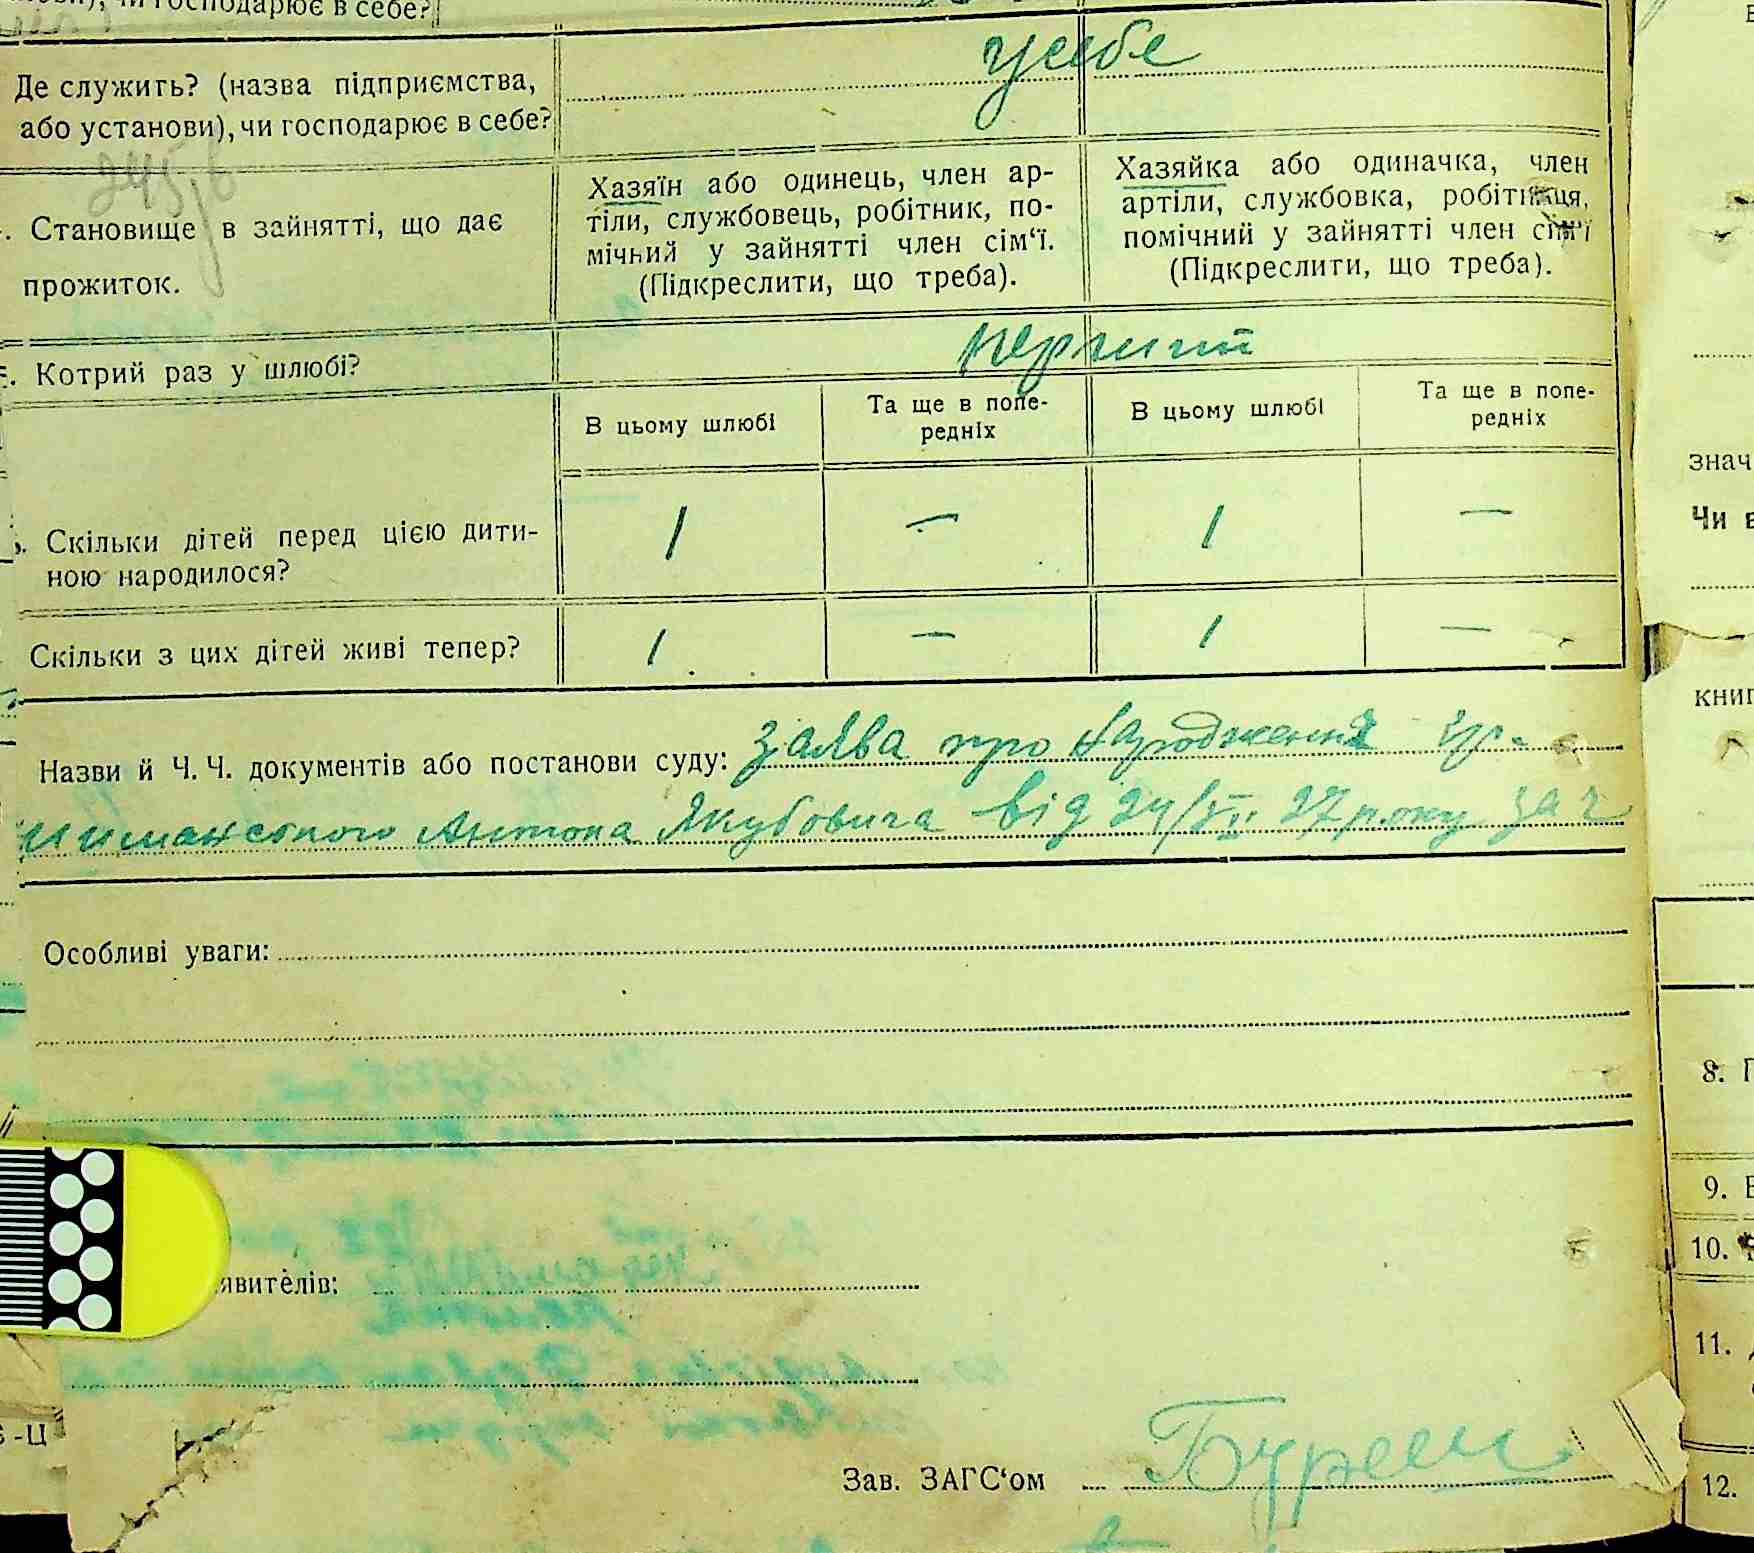 господарює в себе?
Де служить? (назва підприємства,
або установи), чи господарює в себе?
у себе
245
Становище в зайнятті, що дає
прожиток.
Хазяїн або одинець, член ар-
тіли, службовець, робітник, по-
мічний у зайнятті член сім‘ї.
(Підкреслити, що треба).
Хазяйка або одиначка, член
артіли, службовка, робітниця,
помічний у зайнятті член сім‘ї
(Підкреслити, що треба).
Котрий раз у шлюбі?
перший
В цьому шлюбі
Та ще в попе-
редніх
В цьому шлюбі
Та ще в попе-
редніх
Скільки дітей перед цією дити-
ною народилося?
1 — 1 —
Скільки з цих дітей живі тепер?
1 — 1 —
Назви й Ч. Ч. документів або постанови суду: заява про народження гр.
Антона Якубовича від 27 року за ч
Особливі уваги:
явителів:
Зав. ЗАГС‘ом
-Ц
знач
Чи в
книг
8. П
9. В
10.
11.
12.